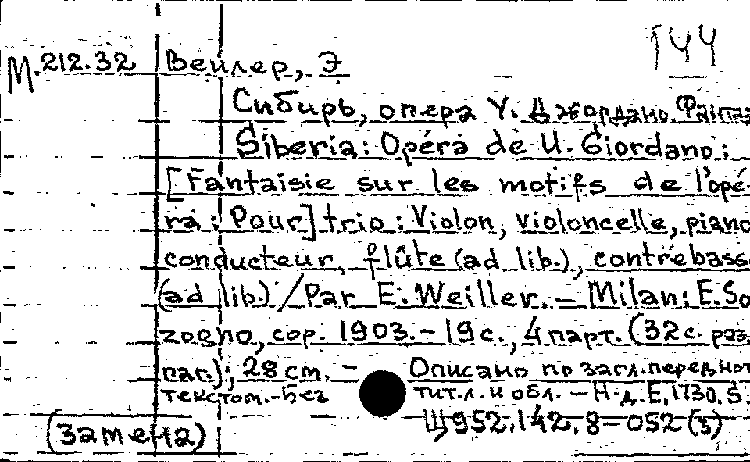 144
М.212.32 Вейлер, Э
Сибирь, опера У. Джордано. Фантаз
Siberia: Opéra de U. Giordano:
[Fantaisie sur les motifs de l'opé-
ra: Pour] trio: Violon, violoncelle, piano
conducteur, flûte (ad lib.), contrebasse
(ad lib.) / Par E. Weiller. — Milan: E. So
zogno, cop. 1903. - 19 с., 4 парт. (32 с. раз.
паг.); 28 см. — Описано по загл. перед нот
текстом. - Без тит. л. и обл. — Н. д. E. 1730. S.
Щ 952.142.8-052 (3)
(замена)